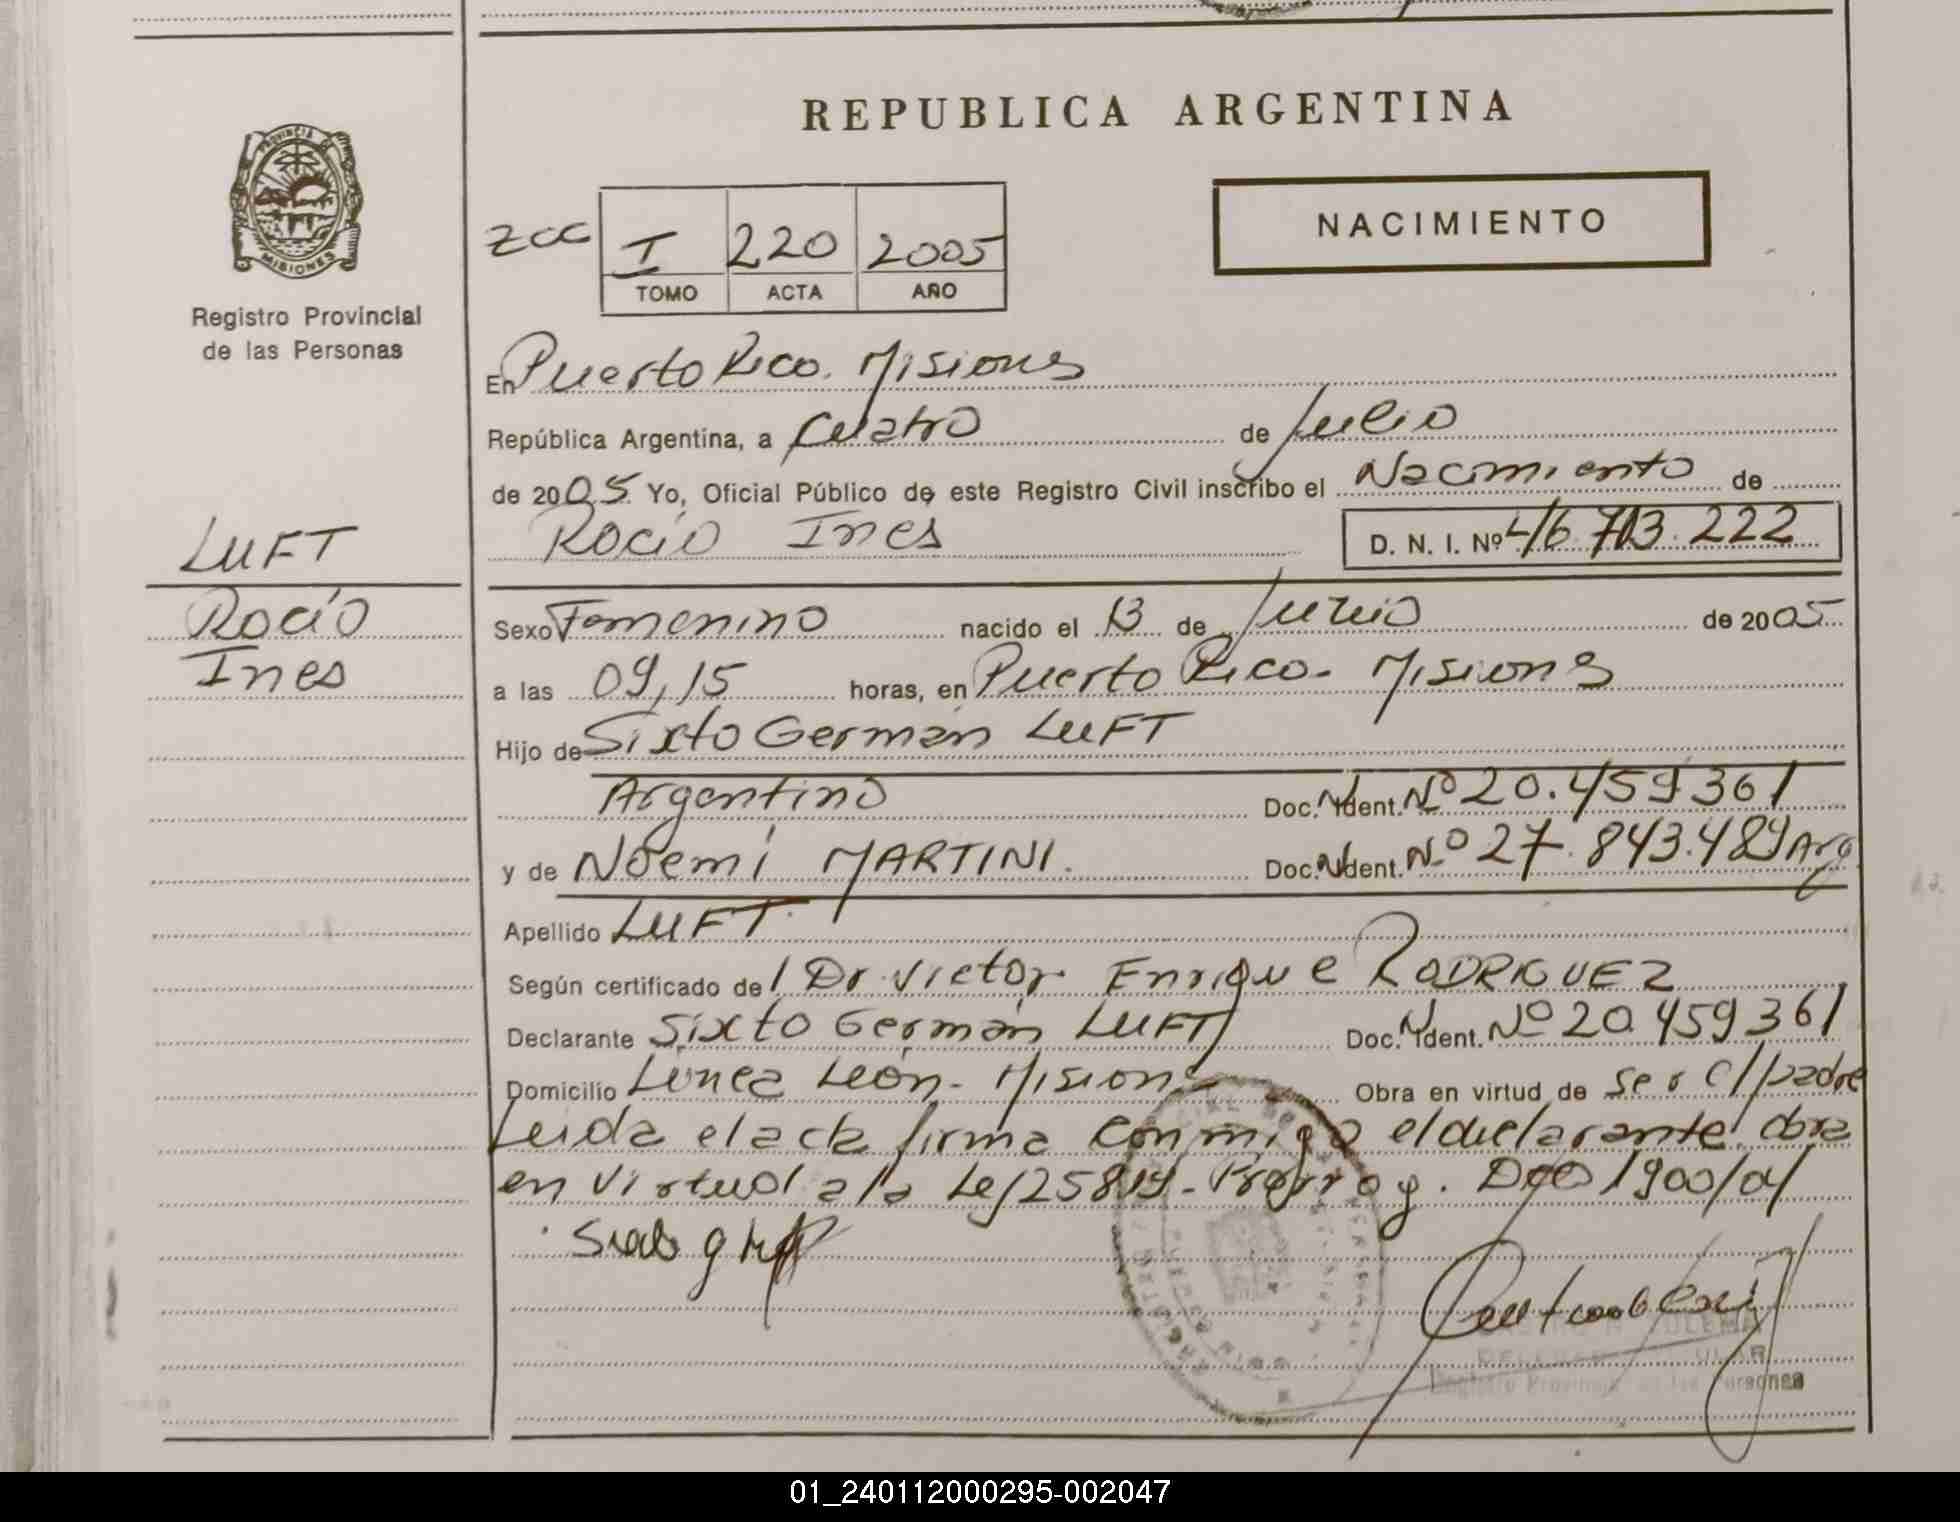 REPUBLICA ARGENTINA
PROVINCIA DE
MISIONES
Registro Provincial
de las Personas
NACIMIENTO
I 220 2005
TOMO ACTA AÑO
En Puerto Rico. Misiones
República Argentina, a Cuatro de Julio
de 2005 Yo, Oficial Público de este Registro Civil inscribo el Nacimiento de
Rocío Ines D. N. I. Nº 46.713.222
LUFT
Rocío
Ines
Sexo Femenino nacido el 13 de Junio de 2005
a las 09,15 horas, en Puerto Rico - Misiones
Hijo de Sixto Germán LUFT
Argentino Doc. N. Ident. Nº 20.459.361
y de Noemí MARTINI. Doc. N. Ident. Nº 27.843.489 Arg
Apellido LUFT.
Según certificado del Dr. Victor Enrique RODRIGUEZ
Declarante Sixto Germán LUFT Doc. N. Ident. Nº 20.459.361
Domicilio Linea León - Misiones Obra en virtud de ser el padre
Leida el acta firma conmigo el declarante obra
en virtud a la Ley 25819 - Prorrog. Dto 1900/01
Registro Provincial de las Personas
01_240112000295-002047